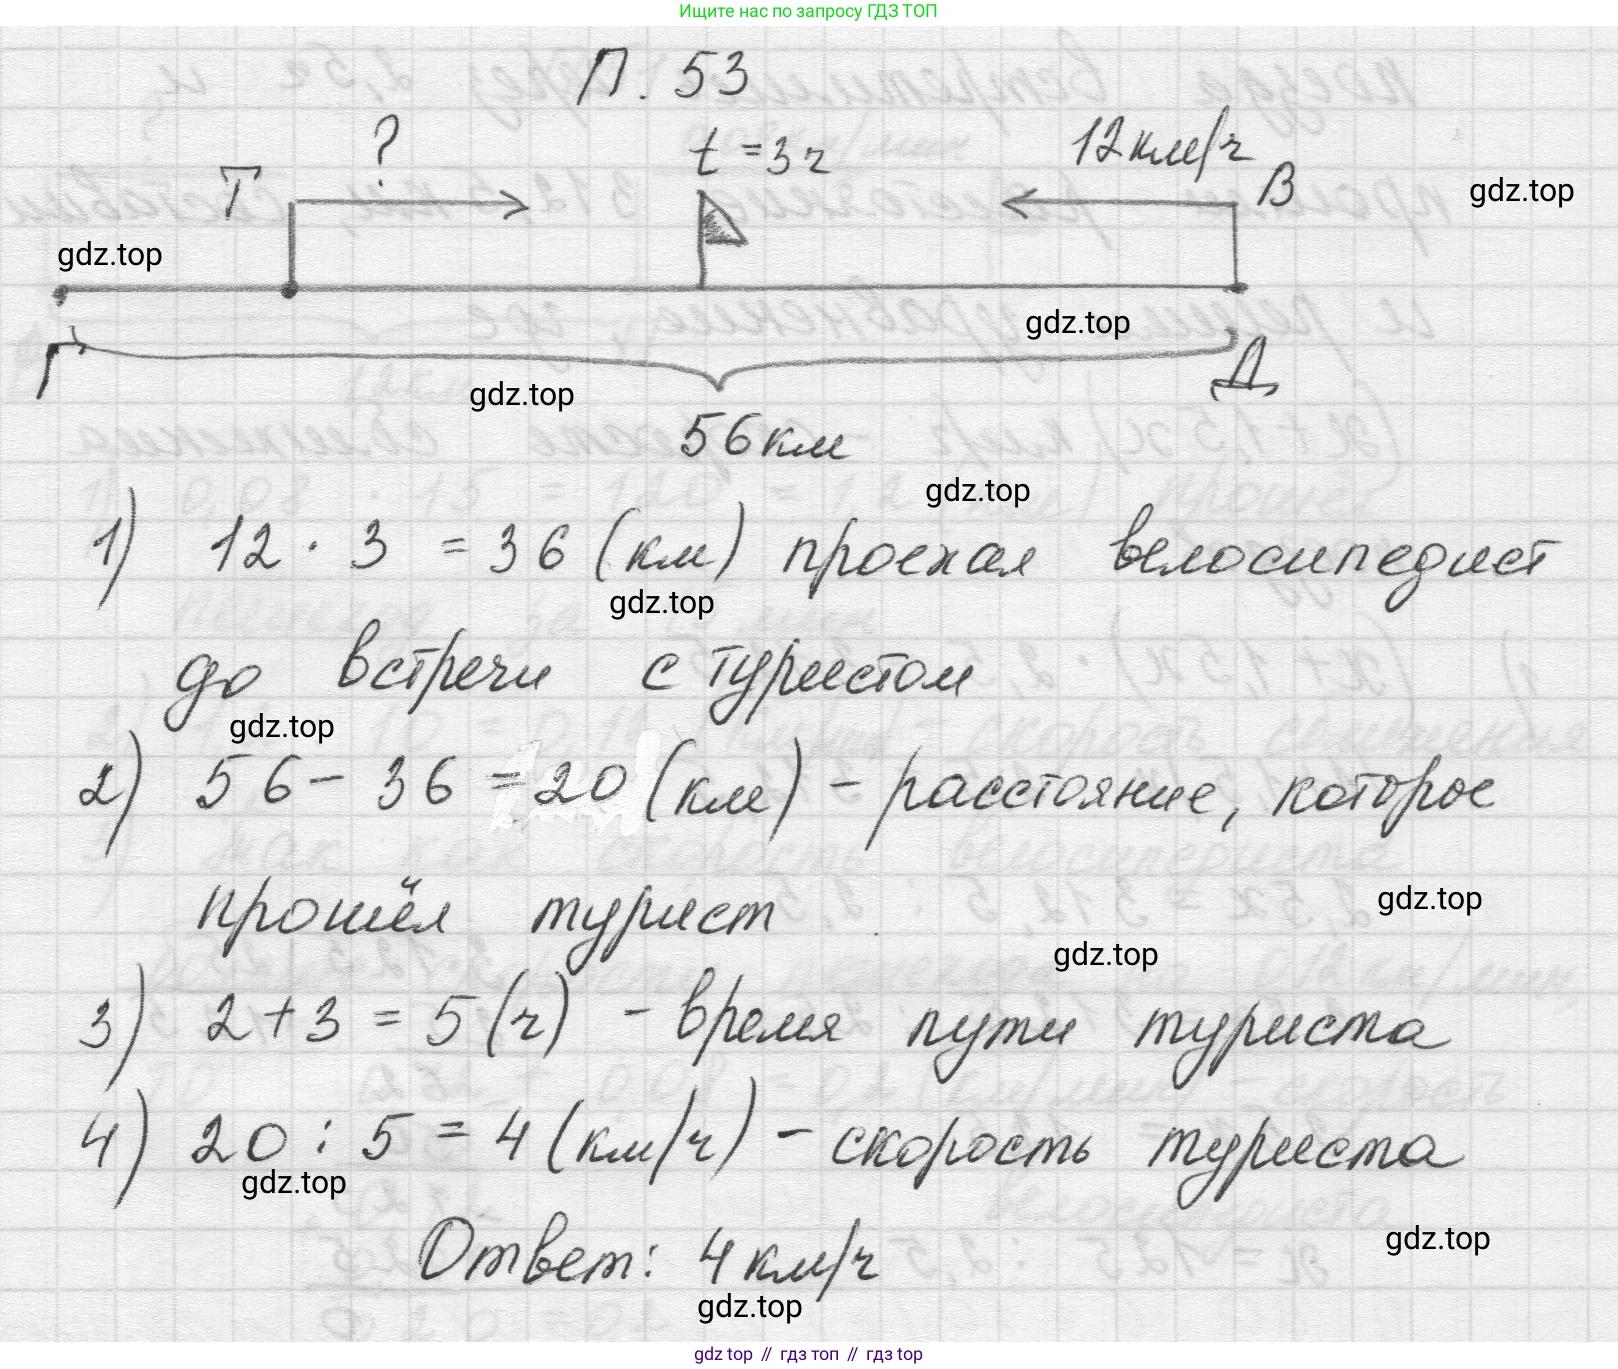 Ищите нас по запросу ГДЗ ТОП
П. 53
? t = 3 ч 12 км/ч
Т В
gdz.top
gdz.top
gdz.top
Г Д
gdz.top
56 км
gdz.top
1) 12 · 3 = 36 (км) проехал велосипедист
gdz.top
до встречи с туристом
gdz.top
2) 56 - 36 = 20 (км) - расстояние, которое
прошёл турист
gdz.top
gdz.top
3) 2 + 3 = 5 (ч) - время пути туриста
4) 20 : 5 = 4 (км/ч) - скорость туриста
gdz.top
Ответ: 4 км/ч
gdz.top
gdz.top
gdz top // гдз топ // гдз top